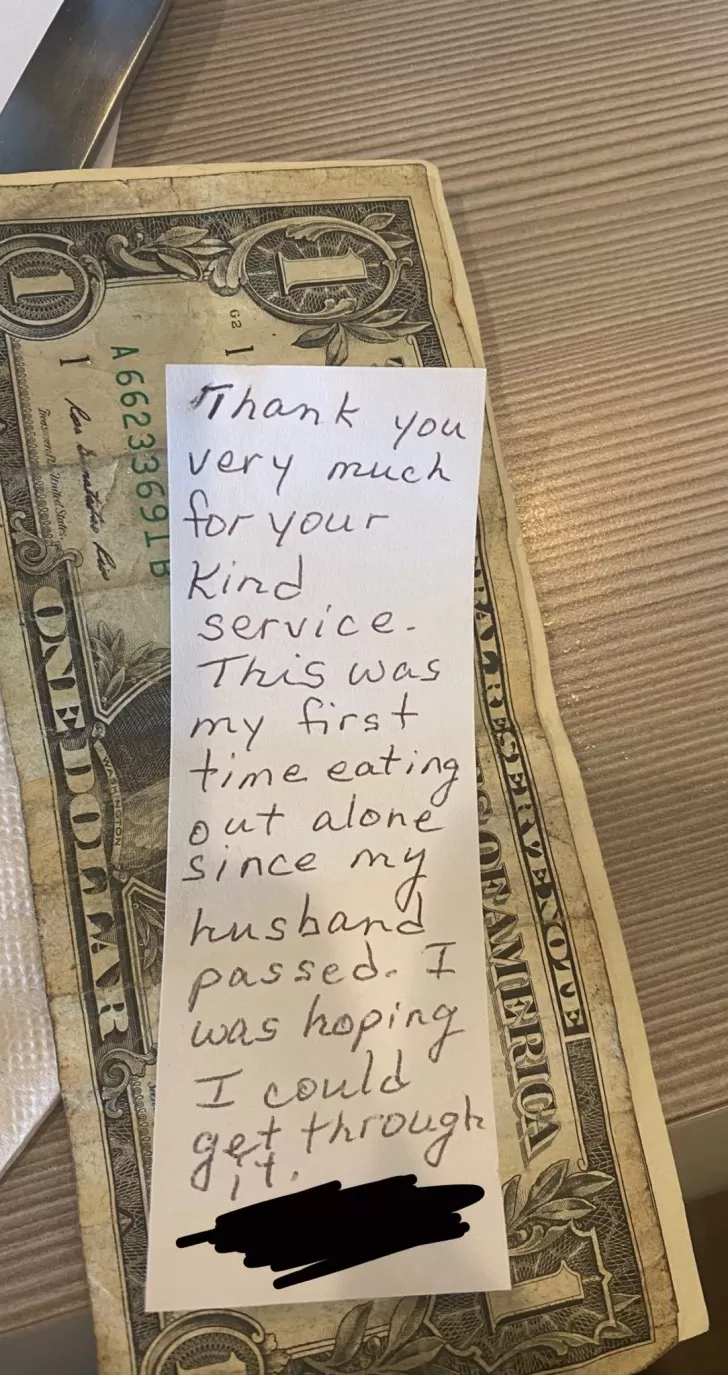 Thank you
very much
for your
kind
service.
This was
my first
time eating
out alone
since my
husband
passed. I
was hoping
I could
get through
it.
1
1
G2
1
1
A66233691B
ONE DOLLAR
WASHINGTON
RESERVE NOTE
OF AMERICA
1
1